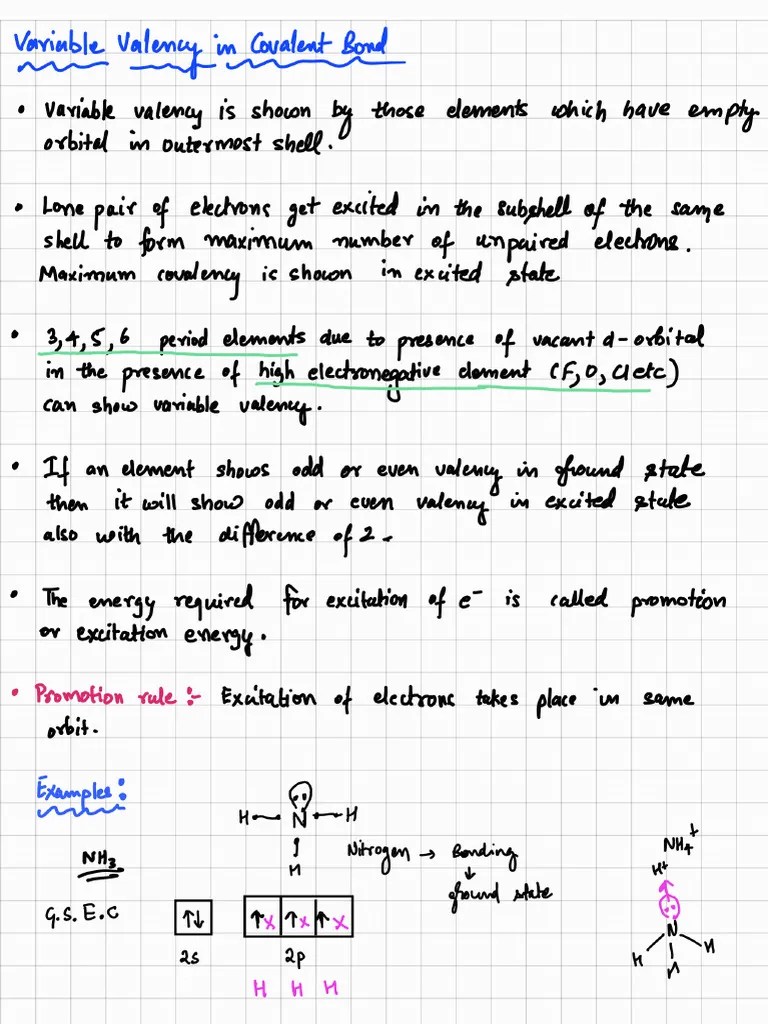 Variable Valency in Covalent Bond
• Variable valency is shown by those elements which have empty
orbital in outermost shell.
• Lone pair of electrons get excited in the subshell of the same
shell to form maximum number of unpaired electrons.
Maximum covalency is shown in excited state
• 3,4,5,6 period elements due to presence of vacant d-orbital
in the presence of high electronegative element (F,O,Cl etc)
can show variable valency.
• If an element shows odd or even valency in ground state
then it will show odd or even valency in excited state
also with the difference of 2.
• The energy required for excitation of e⁻ is called promotion
or excitation energy.
• Promotion rule :- Excitation of electrons takes place in same
orbit.
Examples:
NH₃
H N H
H
Nitrogen → Bonding
↓
ground state
NH₄⁺
H⁺
N
H H H
G.S.E.C
↑↓ ↑x ↑x ↑x
2s 2p
H H H